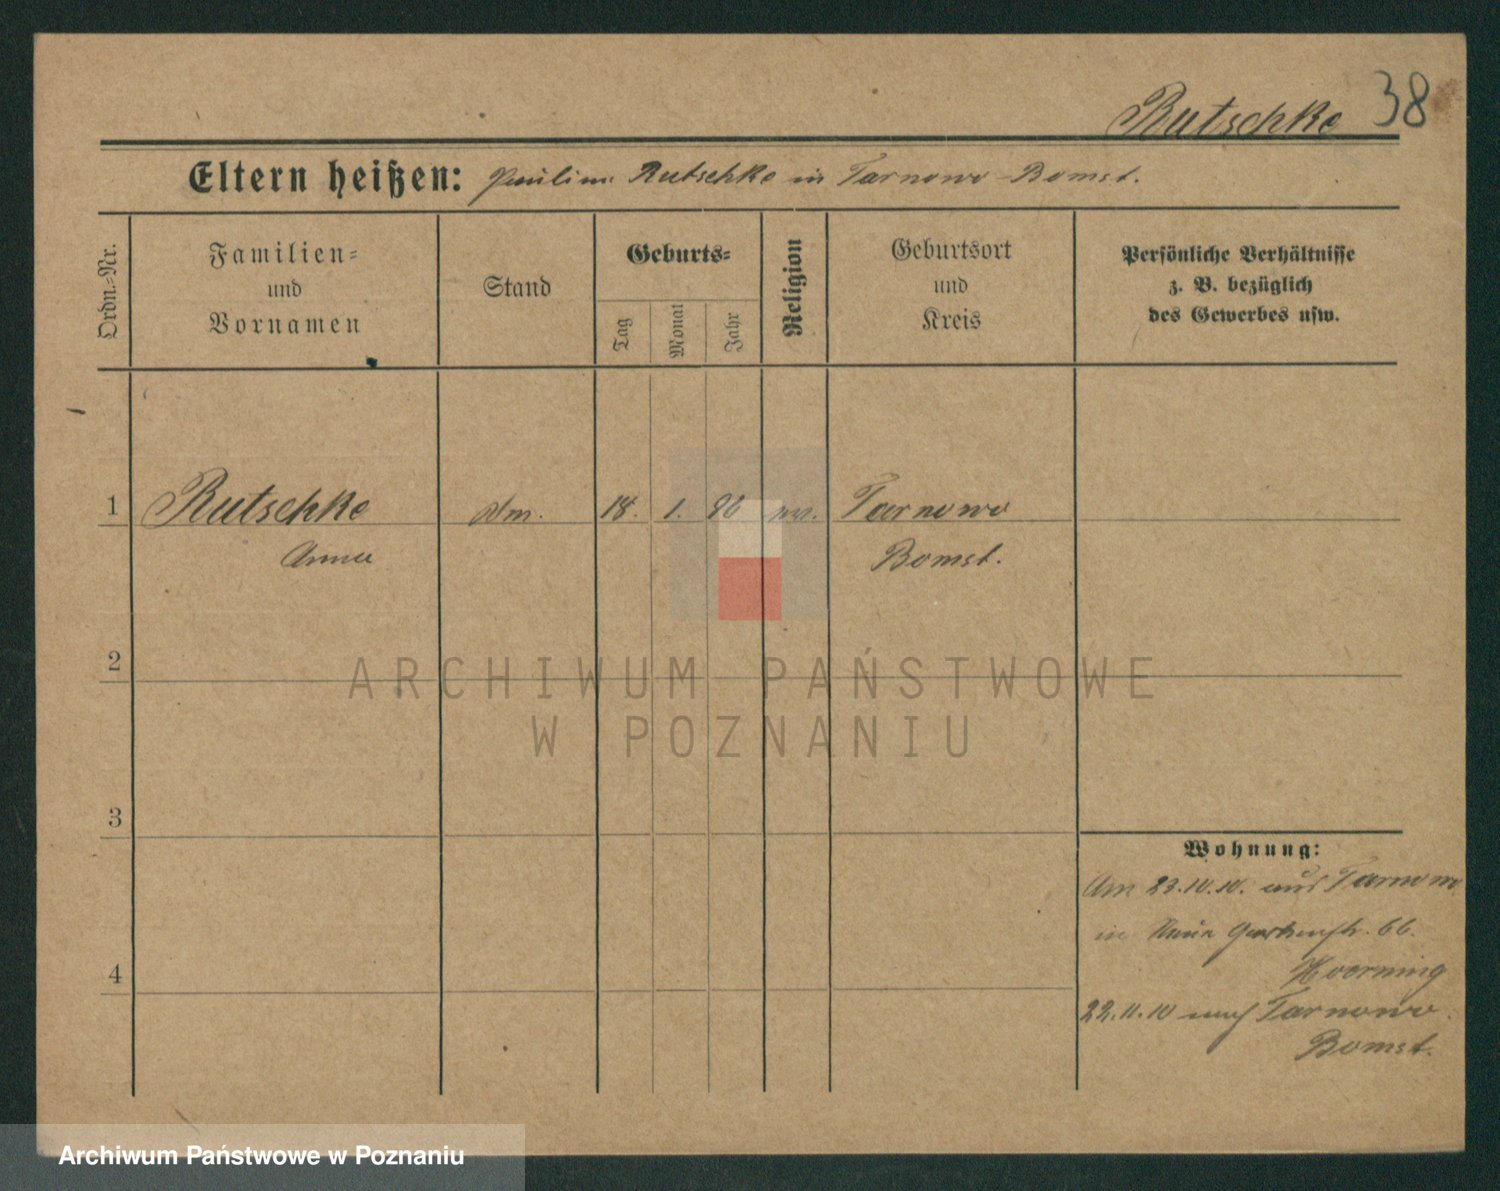 Rutschke 38
Eltern heißen: Pauline Rutschke in Tarnowo-Bomst.
Ordn.-Nr.
Familien-
und
Vornamen
Stand
Geburts-
Tag
Monat
Jahr
Religion
Geburtsort
und
Kreis
Persönliche Verhältnisse
z. B. bezüglich
des Gewerbes usw.
1 Rutschke 18. 1. Tarnowo
Anna Bomst.
2
3
4
Wohnung:
Am 23.10.10. aus Tarnowo
in Neue Gartenstr. 66.
Hoerning
22.11.10 nach Tarnowo.
Bomst.
ARCHIWUM PAŃSTWOWE
W POZNANIU
Archiwum Państwowe w Poznaniu